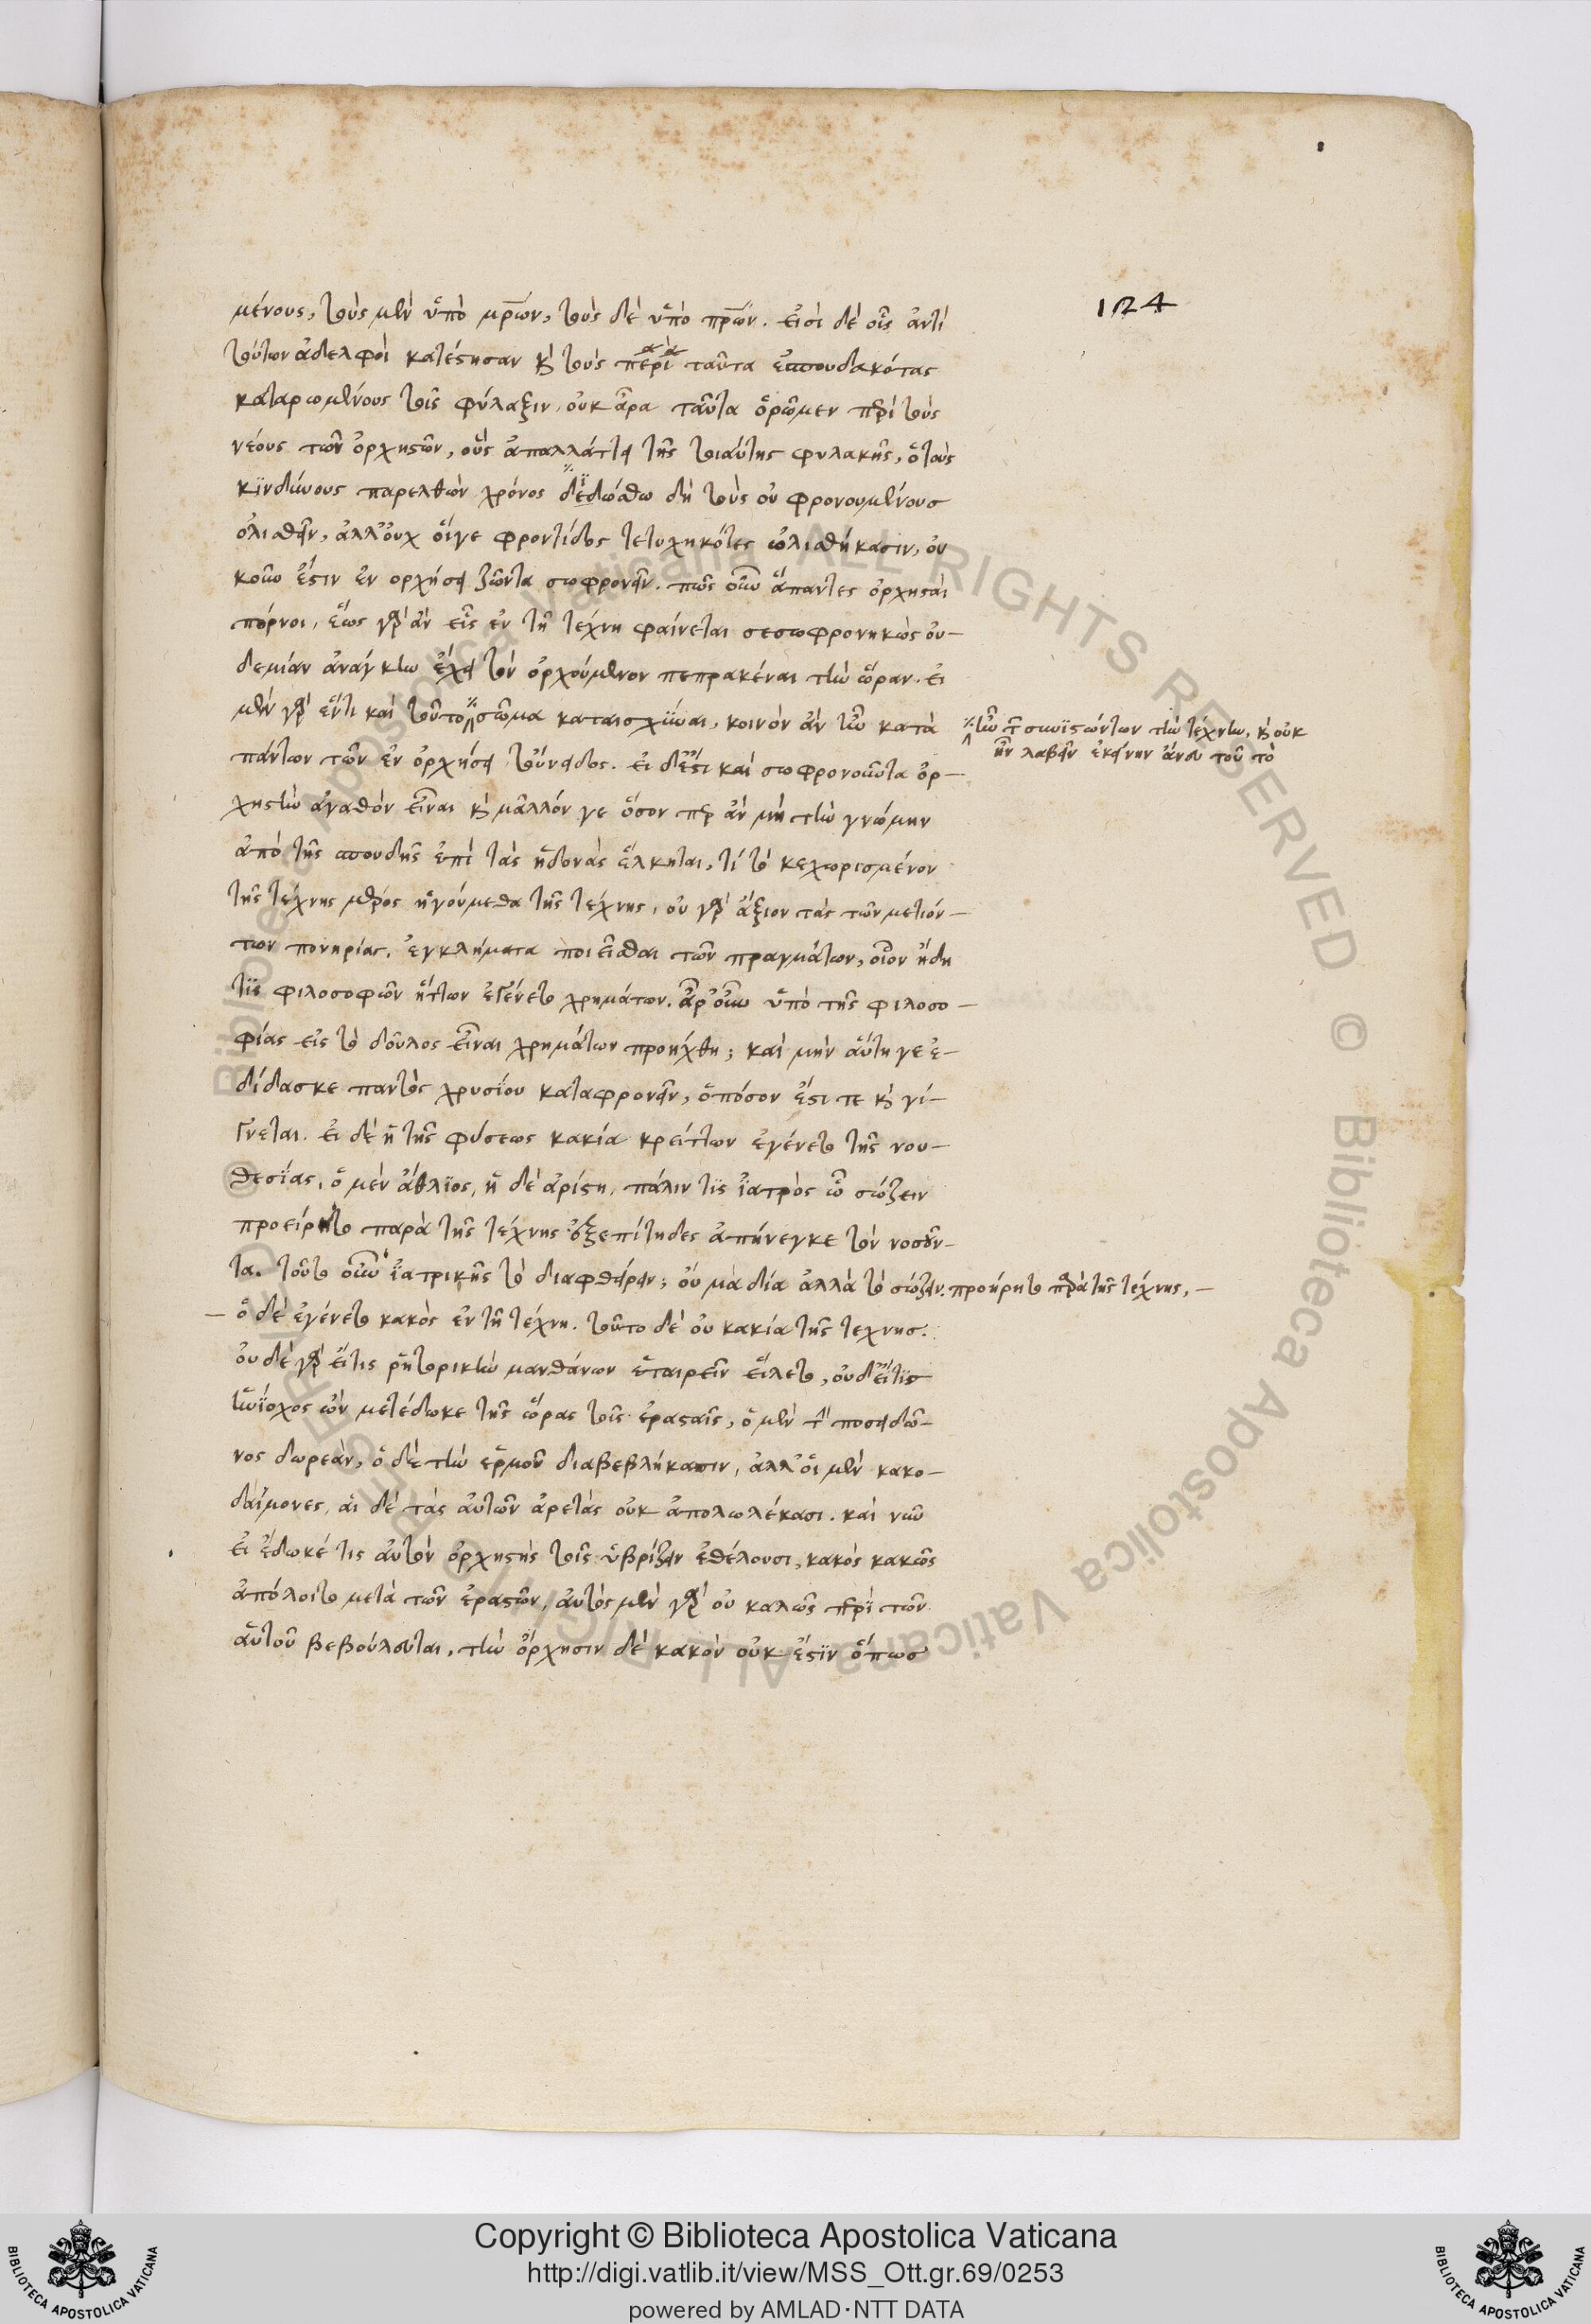 124
μένους, τοὺς μὲν ὑπὸ μρ̅ων, τοὺς δὲ ὑπὸ πρ̅ων. εἰσὶ δὲ οἷς ἀντὶ
τούτων ἀδελφοὶ κατέστησαν καὶ τοὺς περὶ ταῦτα ἐσπουδακότας
καταρωμένους τοῖς φύλαξιν. οὐκ ἄρα ταῦτα ὁρῶμεν περὶ τοὺς
νέους τῶν ὀρχηστῶν, οὓς ἀπαλλάττει τῆς τοιαύτης φυλακῆς, ὁ τοὺς
κϊνδύνους παρελθὼν χρόνος δεδόσθω δὴ τοὺς οὐ φρονουμένους
ὀλισθεῖν, ἀλλ' οὐχ οἵγε φροντίδος τετυχηκότες ὠλισθήκασιν, οὐ
κοῦν ἔστιν ἐν ορχήσει ζῶντα σωφρονεῖν. πῶς οὖν ἅπαντες ὀρχησταὶ
πόρνοι, ἕως γὰρ ἂν εἷς ἐν τῆ τέχνη φαίνεται σεσωφρονηκὼς οὐ-
δεμίαν ἀνάγκην ἔχει τὸν ὀρχούμενον πεπρακέναι τὴν ὥραν. εἰ
μὲν γὰρ ἕν τι καὶ τοῦτο σῶμα καταισχῦναι, κοινὸν ἂν ἦν κατὰ
ἦν τῶν συνϊστώντων τὴν τέχνην, καὶ οὐκ
ἦν λαβεῖν ἐκείνην ἄνευ τοῦ τὸ
πάντων τῶν ἐν ὀρχήσει τοὔνειδος. εἰ δ' ἔστι καὶ σωφρονοῦντα ὀρ-
χηστὴν ἀγαθὸν εἶναι καὶ μᾶλλόν γε ὅσον περ ἂν μὴ τὴν γνώμην
ἀπὸ τῆς σπουδῆς ἐπὶ τὰς ἡδονὰς ἕλκηται, τί τὸ κεχωρισμένον
τῆς τέχνης μέρος ἡγούμεθα τῆς τέχνης, οὐ γὰρ ἄξιον τὰς τῶν μετιόν-
των πονηρίας, ἐγκλήματα ποιεῖσθαι τῶν πραγμάτων, οἷον ἤδη
τϊς φιλοσοφῶν ἥττων ἐγένετο χρημάτων. ἆρ' οὖν ὑπὸ τῆς φιλοσο-
φίας εἰς τὸ δοῦλος εἶναι χρημάτων προήχθη; καὶ μὴν αὕτη γε ἐ-
δίδασκε παντὸς χρυσίου καταφρονεῖν, ὁπόσον ἔστι τε καὶ γί-
γνεται. εἰ δὲ ἡ τῆς φύσεως κακία κρείττων ἐγένετο τῆς νου-
θεσίας, ὁ μὲν ἄθλϊος, ἡ δὲ ἀρίστη. πάλιν τϊς ἰατρὸς ᾧ σώζειν
προείρητο παρὰ τῆς τέχνης ἐξεπίτηδες ἀπήνεγκε τὸν νοσοῦν-
τα. τοῦτο οὖν ἰατρικῆς τὸ διαφθείρειν; οὐ μὰ δία ἀλλὰ τὸ σώζειν. προήρητο παρὰ τῆς τέχνης,-
-ὁ δὲ ἐγένετο κακὸς ἐν τῆ τέχνη. τοῦτο δὲ οὐ κακία τῆς τεχνησ.
οὐδὲ γὰρ εἴ τις ῥητορικὴν μανθάνων ἑταιρεῖν εἵλετο, οὐδ' εἴ τϊς
ἡνίοχος ὢν μετέδωκε τῆς ὥρας τοῖς ἐρασταῖς, ὁ μὲν τὴν ποσειδῶ-
νος δωρεὰν, ὁ δὲ τὴν ἑρμοῦ διαβεβλήκασιν, ἀλλ' οἱ μὲν κακο-
δαίμονες, αἱ δὲ τὰς αὑτῶν ἀρετὰς οὐκ ἀπολωλέκασι. καὶ νῦν
εἰ ἔδωκέ τις αὑτὸν ὀρχηστὴς τοῖς ὑβρίζειν ἐθέλουσι, κακὸς κακῶς
ἀπόλοιτο μετὰ τῶν ἐραστῶν, αὐτὸς μὲν γὰρ οὐ καλῶς περὶ τῶν
αὑτοῦ βεβούλευται, τὴν ὄρχησιν δὲ κακὸν οὐκ ἔστϊν ὅπωσ
© Biblioteca Apostolica Vaticana ALL RIGHTS RESERVED © Biblioteca Apostolica Vaticana ALL RIGHTS RESERVED
Copyright © Biblioteca Apostolica Vaticana
http://digi.vatlib.it/view/MSS_Ott.gr.69/0253
powered by AMLAD·NTT DATA
BIBLIOTECA APOSTOLICA VATICANA
BIBLIOTECA APOSTOLICA VATICANA